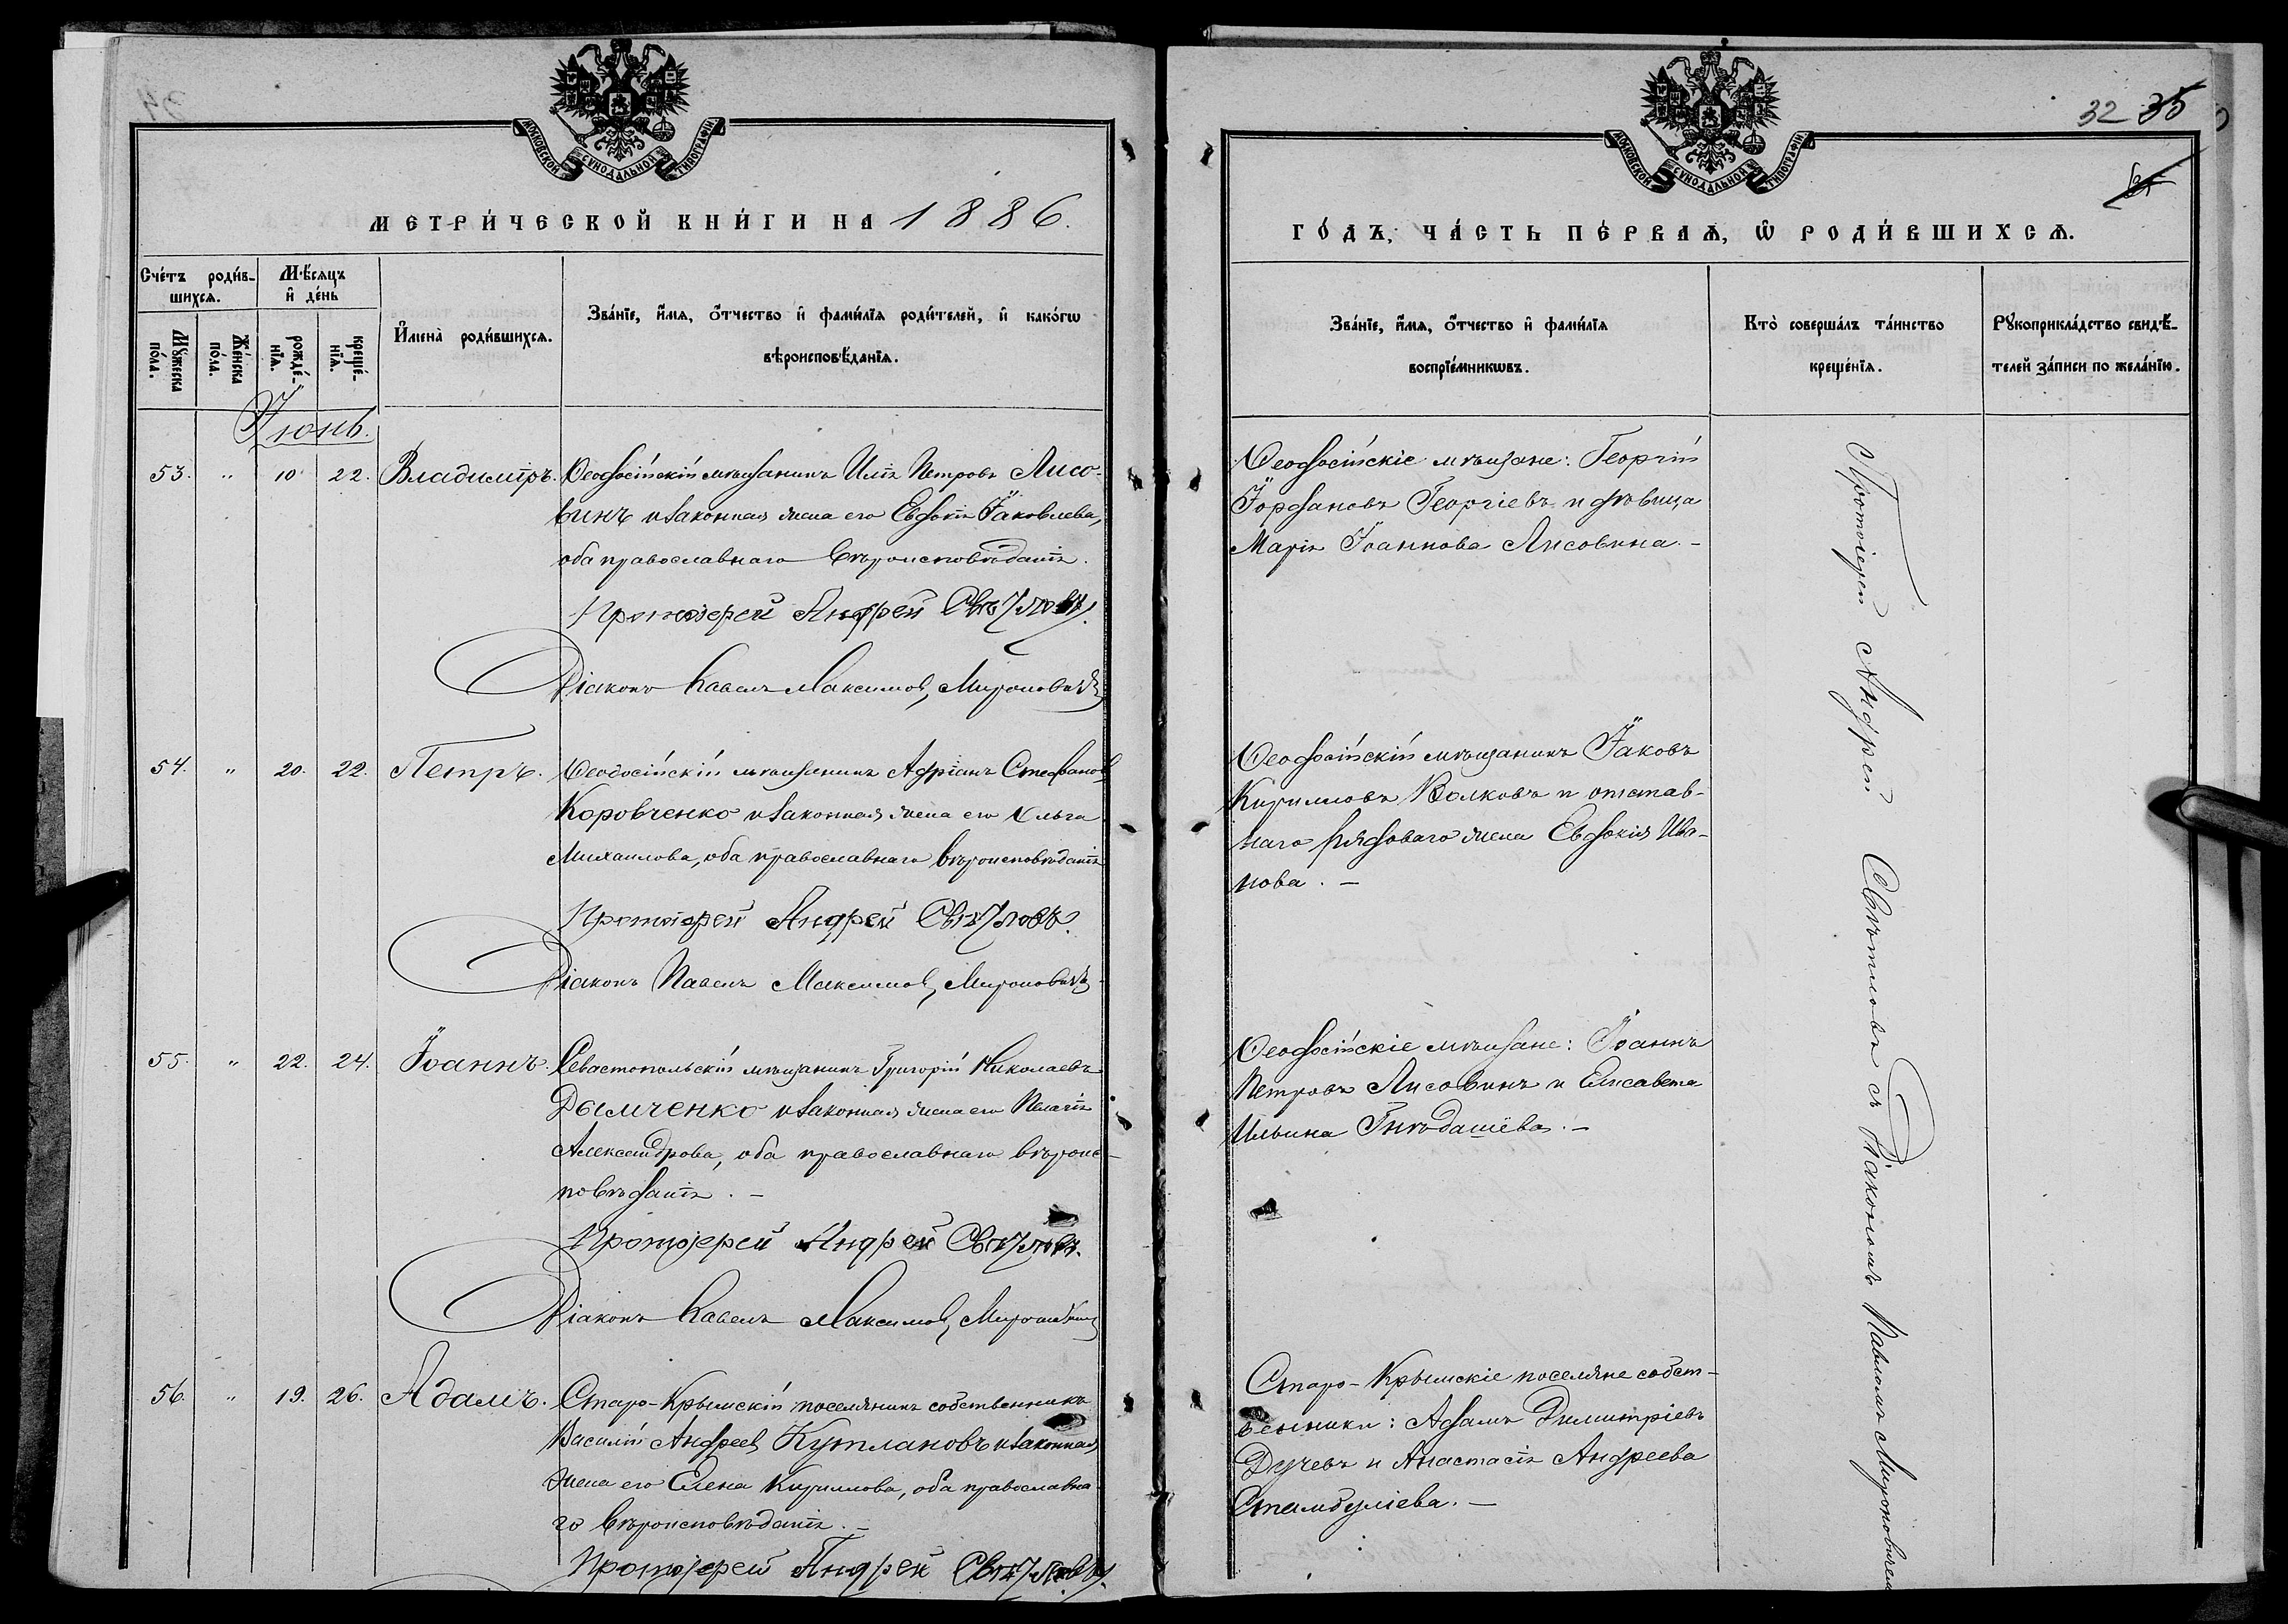 МОСКОВСКОЙ СУНОДАЛЬНОЙ ТИПОГРАФІИ
МЕТРИ́ЧЕСКОЙ КНИ́ГИ НА 1886.
Сче́тъ роди́в-
шихсѧ.
Мѣ́сѧцъ
и҆ де́нь
Мꙋ́жеска
по́ла.
Же́нска
по́ла.
рожде́-
нїѧ.
креще́-
нїѧ.
И҆мена̀ роди́вшихсѧ.
Зва́нїе, и҆́мѧ, ѻ҆́тчество и҆ фами́лїѧ роди́телей, и҆ како́гѡ
вѣроисповѣ́данїѧ.
Іюнь.
53. " 10 22. Владиміръ. Ѳеодосійскій мѣщанинъ Илія Петровъ Лисо-
винъ и законная жена его Евдокія Іаковлева,
оба православнаго вѣроисповѣданія.
Протоіерей Андрей Свѣтловъ.
Діаконъ Павелъ Максимов. Мироновичъ
54. " 20. 22. Петръ. Ѳеодосійскій мѣщанинъ Адріанъ Стефановъ
Коровченко и законная жена его Ольга
Михаилова, оба православнаго вѣроисповѣданія
Протоіерей Андрей Свѣтловъ.
Діаконъ Павелъ Максимов. Мироновичъ
55. " 22. 24. Іоаннъ. Севастопольскій мѣщанинъ Григорій Николаевъ
Дымченко и законная жена его Пелагія
Александрова, оба православнаго вѣроис-
повѣданія. –
Протоіерей Андрей Свѣтловъ.
Діаконъ Павелъ Максимов. Мироновичъ
56. " 19. 26. Адамъ. Старо-Крымскій поселянинъ собственникъ
Василій Андреев. Кутлановъ и законная
жена его Елена Кириллова, оба православна-
го вѣроисповѣданія. –
Протоіерей Андрей Свѣтловъ.
32 35
МОСКОВСКОЙ СУНОДАЛЬНОЙ ТИПОГРАФІИ
ГО́ДЪ, ЧА́СТЬ ПЕ́РВАѦ, Ѡ҆ РОДИ́ВШИХСѦ.
Зва́нїе, и҆́мѧ, ѻ҆́тчество и҆ фами́лїѧ
воспрїе́мникѡвъ.
Кто̀ соверша́лъ та́инство
креще́нїѧ.
Рꙋкоприкла́дство свидѣ́-
телей за́писи по жела́нїю.
Ѳеодосійскіе мѣщане: Георгій
Іордановъ Георгіевъ и дѣвица
Марія Іоаннова Лисовина. –
Ѳеодосійскій мѣщанинъ Іаковъ
Кирилловъ Волковъ и отстав-
наго рядоваго жена Евдокія Ива-
нова. –
Ѳеодосійскіе мѣщане: Іоаннъ
Петровъ Лисовинъ и Елисавета
Ильина Гнѣдашева. –
Старо-Крымскіе поселяне собст-
венники: Адамъ Димитріевъ
Дучевъ и Анастасія Андреева
Стамбуліева. –
Протоіерей Андрей Свѣтловъ съ Діакономъ Павломъ Мироновичем